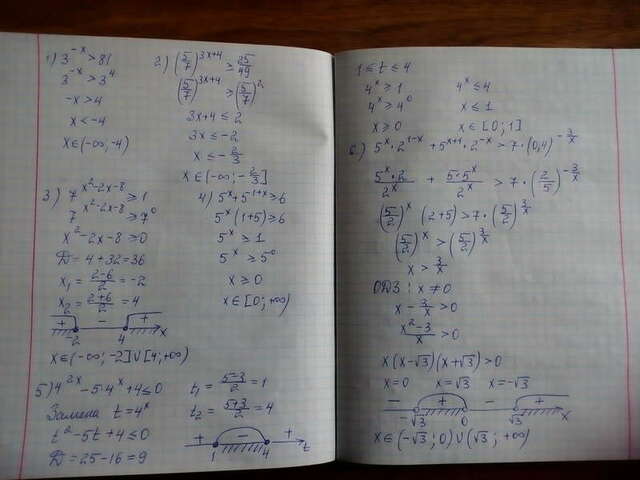 1) 3^{-x} > 81
3^{-x} > 3^4
-x > 4
x < -4
x ∈ (-∞; -4)
2) (5/7)^{3x+4} ≥ 25/49
(5/7)^{3x+4} ≥ (5/7)^2
3x+4 ≤ 2
3x ≤ -2
x ≤ -2/3
x ∈ (-∞; -2/3]
3) 7^{x^2-2x-8} ≥ 1
7^{x^2-2x-8} ≥ 7^0
x^2-2x-8 ≥ 0
D = 4+32 = 36
x_1 = (2-6)/2 = -2
x_2 = (2+6)/2 = 4
+ - +
-2 4 x
x ∈ (-∞; -2] ∪ [4; +∞)
4) 5^x + 5^{1+x} ≥ 6
5^x (1+5) ≥ 6
5^x ≥ 1
5^x ≥ 5^0
x ≥ 0
x ∈ [0; +∞)
5) 4^{2x} - 5·4^x + 4 ≤ 0
Замена t = 4^x
t^2 - 5t + 4 ≤ 0
D = 25-16 = 9
t_1 = (5-3)/2 = 1
t_2 = (5+3)/2 = 4
+ - +
1 4 t
1 ≤ t ≤ 4
4^x ≥ 1
4^x ≥ 4^0
x ≥ 0
4^x ≤ 4
x ≤ 1
x ∈ [0; 1]
6) 5^x · 2^{1-x} + 5^{x+1} · 2^{-x} > 7 · (0,4)^{-3/x}
(5^x · 2)/2^x + (5·5^x)/2^x > 7 · (2/5)^{-3/x}
(5/2)^x (2+5) > 7 · (5/2)^{3/x}
(5/2)^x > (5/2)^{3/x}
x > 3/x
ОДЗ: x ≠ 0
x - 3/x > 0
(x^2-3)/x > 0
x(x-√3)(x+√3) > 0
x=0 x=√3 x=-√3
- + - +
-√3 0 √3 x
x ∈ (-√3; 0) ∪ (√3; +∞)